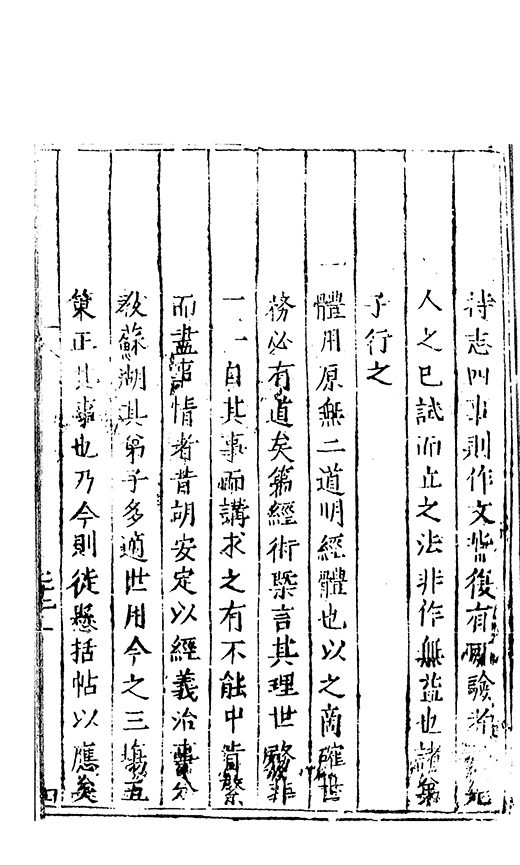 持志叫事則作文皆復有驗者
人之已試而立之法非作無益也諸弟
子行之
一體用原無二道明經體也以之商確世
務必有道矣第經術槩言其理世務非
一一自其事而講求之有不能中肯綮
而盡事情者昔胡安定以經義治事分
教蘇湖其弟子多適世用今之三塲五
策正其事也乃今則徒懸括帖以應矣